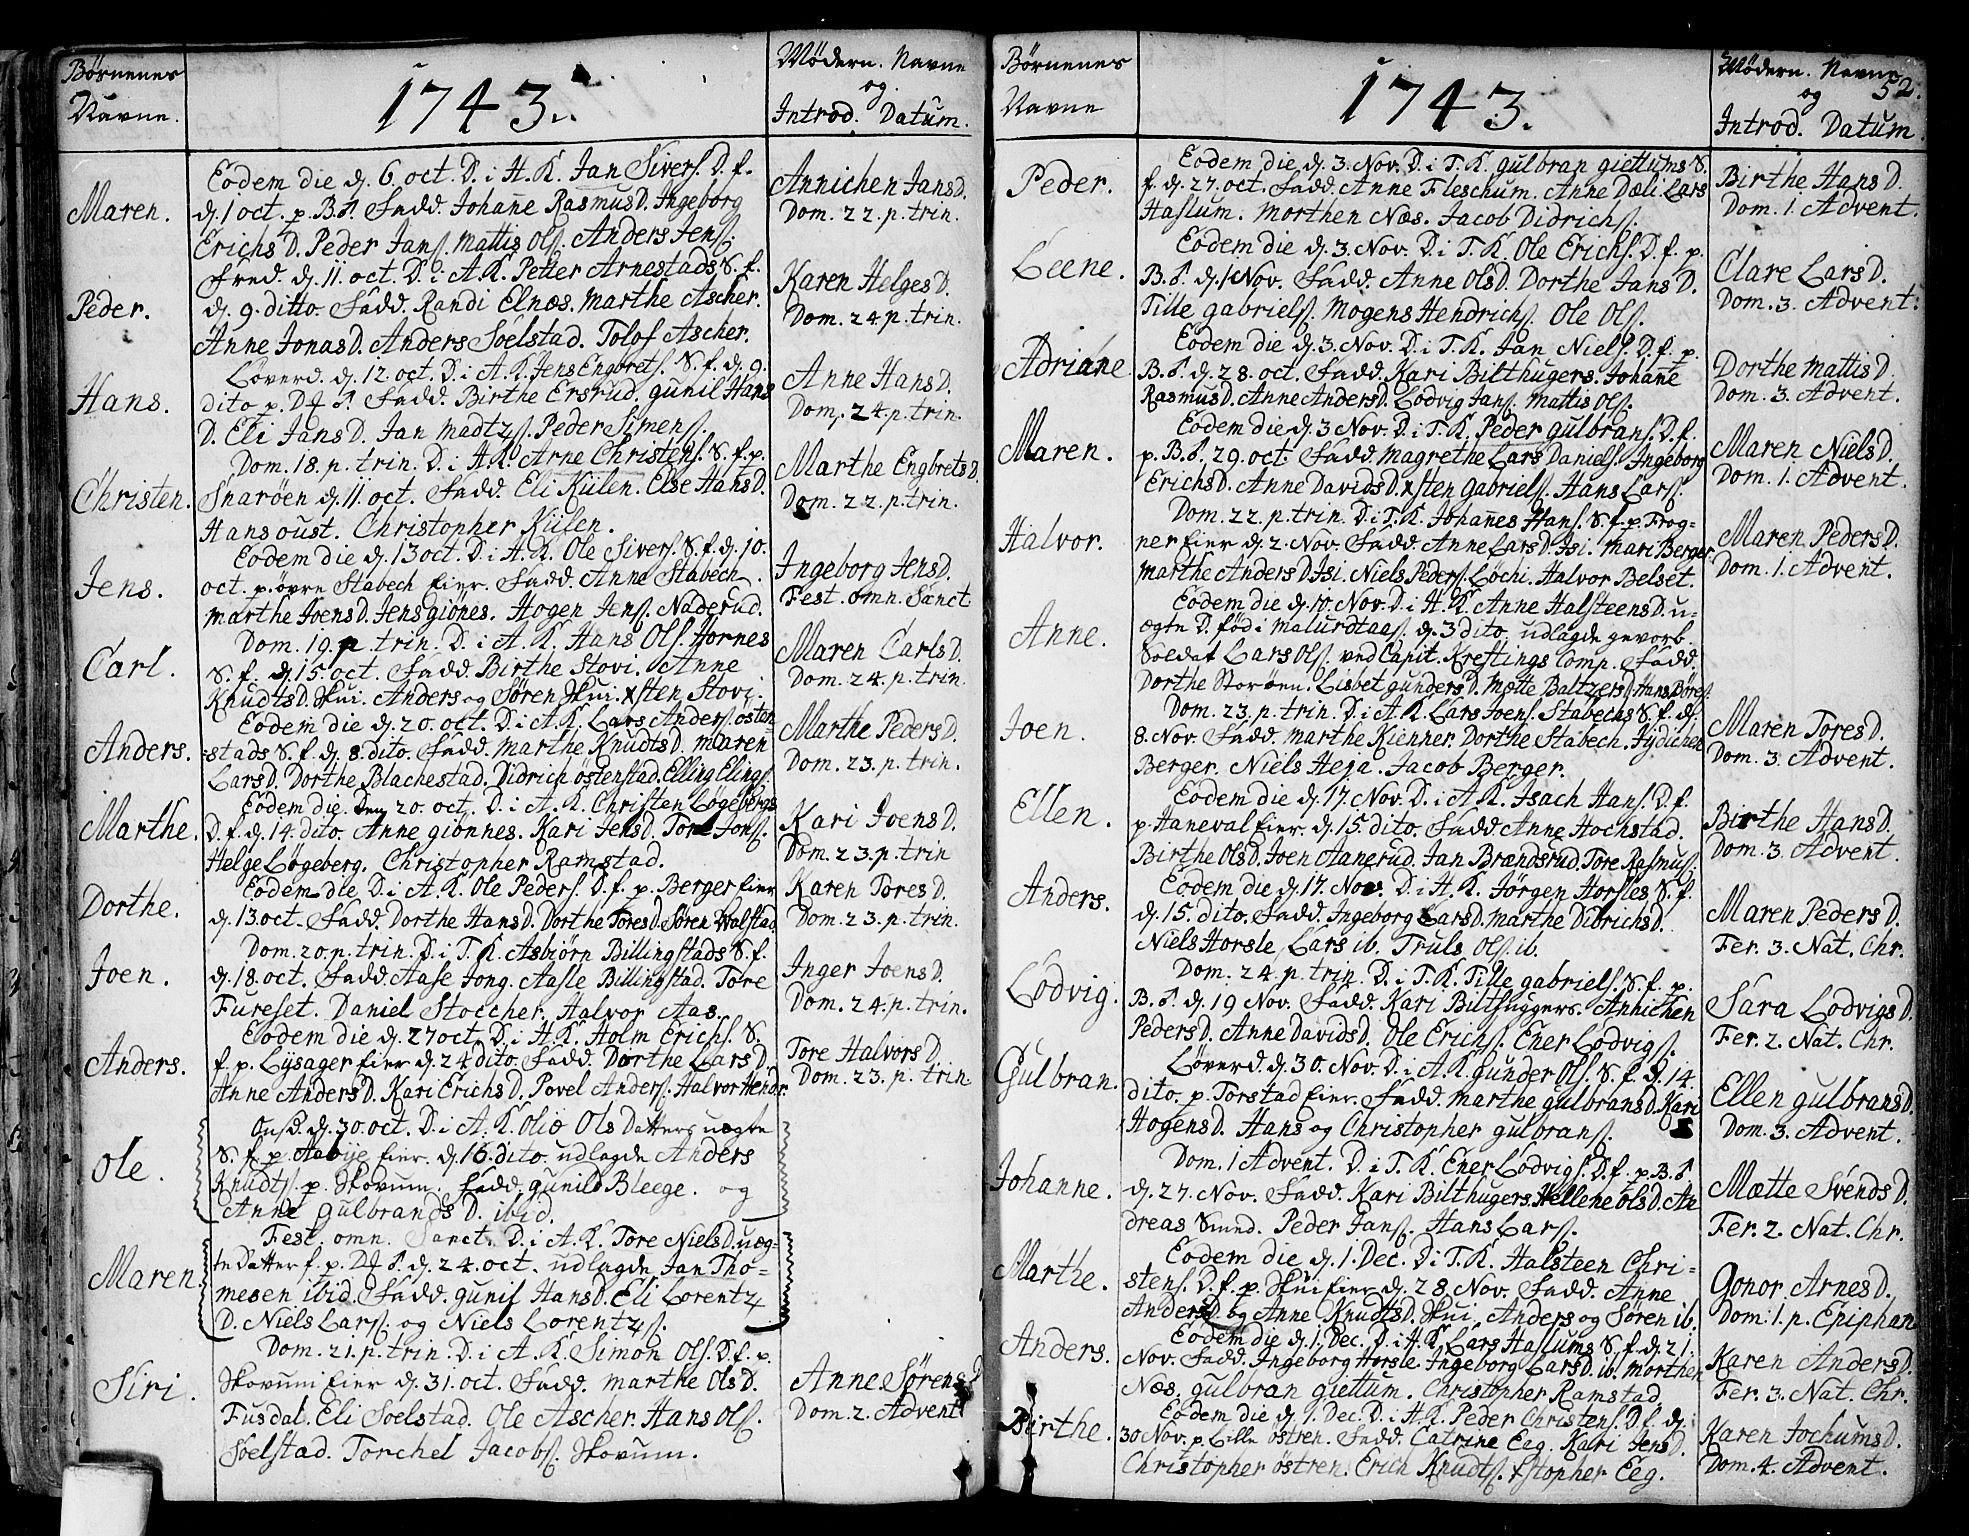 Børnenes
Navne.
1743.
Mödern. Navne
og
Introd. Datum.
Maren.
Eodem die d. 6 oct. D. i H. K. Jan Sivers. D. f.
d. 1 oct. p. B. S. Fadd. Johane RasmusD. Ingeborg
Erichs D. Peder Jans. Mattis Ols. Anders Jens.
Annichen JansD.
Dom. 22. p. trin.
Peder.
Fred. d. 11. oct. D. i A. K. Petter Arnestads S. f.
d. 9. ditto. Fadd. Randi Elnæs. Marthe Ascher.
Anne JonasD. Anders Söelstad. Tolof Ascher.
Karen HelgesD.
Dom. 24. p. trin.
Hans.
Løverd. d. 12. oct. D. i A. K. Jens Engbrets. S. f. d. 9.
dito p. Fadd. Birthe Ersrud. gunil Hans
D. Eli JansD. Jan Madtzs. Peder Simens.
Anne HansD.
Dom. 24. p. trin.
Christen.
Dom. 18. p. trin. D. i H. K. Arne Christens. S. f. p.
Snarøen d. 11. oct. Fadd. Eli Kiilen. Else HansD.
Hans oust. Christopher Kiilen.
Marthe EngbretsD
Dom. 22. p. trin.
Jens.
Eodem die d. 13 oct. D. i H. K. Ole Sivers. S. f. d. 10.
oct. p. øvre Stabech Eier. Fadd. Anne Stabech.
Marthe JoensD. Jens giönes. Hogen Jens. Naderud.
Ingeborg JensD.
Fest. omn. Sanct
Carl.
Dom. 19. p trin. D. i A. K. Hans Ols. Hornes
S. f. d. 15. oct. Fadd. Birthe Stovi. Anne
KnudtsD. Skui. Anders og Søren Skui. xsten Stovi.
Maren CarlsD.
Dom. 24. p. trin.
Anders.
Eodem die d. 20. oct. D. i A. K. Lars Anders. østen
=stads S. f. d. 8. dito. Fadd. Marthe KnudtsD. Maren
LarsD. Dorthe Blachestad. Didrich østenstad. Elling Elings.
Marthe PedersD.
Dom. 23. p. trin.
Marthe.
Eodem die. den 20. oct. D. i A. K. Christen Løgebergs
D. f. d. 14. dito. Anne giønnes. Kari JensD. Tore Jons.
Helge Løgeberg. Christopher Ramstad.
Kari JoensD.
Dom. 23. p. trin
Dorthe.
Eodem die D. i A. K. Ole Peders. D. f. p. Berger Eier
d. 13 oct. Fadd Dorthe HansD. Dorthe ToresD. Søren Walstad.
Karen ToresD.
Dom. 23. p. trin.
Joen.
Dom. 20. p. trin. D. i T. K. Asbiørn Billingstads S. f.
d. 18 oct. Fadd Aase Jong. Aasle Billingstad. Tore
Fureset. Daniel Stoccher. Halvor Aas.
Inger JoensD.
Dom. 24. p. trin.
Anders.
Eodem die d. 27 oct. D. i H. K. Holm Erichs. S.
f. p. Lysager Eier d. 24 dito. Fadd. Dorthe LarsD.
Anne AndersD. Kari ErichsD. Povel Anders. Halvor Hendr.
Tore HalvorsD.
Dom. 23. p. trin
Ole.
Onsd. d. 30. oct. D. i A. K. Olio Ols Datters uægte
S. f. p. Aabye Eier. d. 16. dito. udlagde Anders
Knudts. p. Skovum. Fadd. gunild Bleege. og
Anne gulbrands D. ibid.
Maren.
Fest. omn. Sanct. D. i A. K. Tore NielsD. uæg=
te Datter f. p. d. 24. oct. udlagde Jan Tho=
mesen ibid. Fadd. gunil HansD. Eli Lorentz
D. Niels Lars. og Niels Lorentzs.
Siri.
Dom. 21. p. trin. D. i A. K. Simon Ols. D. f. p.
Skovum Eier d. 31. oct. Fadd. Marthe OlsD.
Fusdal. Eli Soelstad. Ole Ascher. Hans Ols.
Soelstad. Torchel Jacobs. Skovum.
Anne SørensD
Dom. 2. Advent
Börnenes
Navne
1743.
Mödern. Navne
og
Introd. Datum.
52.
Peder.
Eodem die d. 3. Nov. D. i T. K. gulbran giettums S.
f. d. 27. oct. Fadd. Anne Fleschum. Anne Dæli. Lars
Haslum. Morthen Næs. Jacob Didrichs.
Birthe HansD.
Dom. 1. Advent.
Leene.
Eodem die d. 3. Nov. D. i T. K. Ole Erichs. D. f. p.
B. S. d. 1 Nov. Fadd. Anne OlsD. Dorthe JansD.
Tille gabriels. Mogens Hendrichs. Ole Ols.
Clare LarsD.
Dom. 3. Advent.
Adriane
Eodem die d. 3. Nov. D. i T. K. Jan Niels. D. f. p.
B. S. d. 28. oct. Fadd. Kari Bilthugers. Johane
RasmusD. Anne AndersD. Lodvig Jans. Mattis Ols.
Dorthe MattisD.
Dom. 3. Advent.
Maren.
Eodem die d. 3. Nov. D. i T. K. Peder gulbrans. D. f.
p. B. S. 29. oct. Fadd. Magrethe Lars Daniels. Ingeborg
ErichsD. Anne DavidsD. xsten gabriels. Hans Lars.
Maren NielsD.
Dom. 1. Advent.
Halvor.
Dom. 22. p. trin. D. i T. K. Johanes Hans. S. f. p. Frog-
ner Eier d. 2. Nov. Fadd. Anne LarsD. Isi. Mari Berger.
Marthe AndersD. Isi. Niels Peders. Løchi. Halvor Belset.
Maren PedersD.
Dom. 1. Advent.
Anne.
Eodem die d. 10. Nov. D. i H. K. Anne HalsteensD. u-
ægte D. fød i d. 3 dito. udlagde gevorb.
Soldat Lars Ols. ved Capit. Kreftings Comp. Fadd.
Dorthe Storøen. Lisbet gundersD. Mætte BaltzersD.
Joen.
Dom. 23. p. trin. D. i A. K. Lars Joens. Stabechs S. f. d.
8. Nov. Fadd. Marthe Kienner. Dorthe Stabech.
Berger. Niels Heja. Jacob Berger.
Maren ToresD.
Dom. 3. Advent.
Ellen.
Eodem die d. 17. Nov. D. i A. K. Isach Hans. D. f.
p. Haneval Eier. d. 15. dito. Fadd. Anne Hochstad.
Birthe OlsD. Joen Aanerud. Jan Brændsrud. Tore Rasmus.
Birthe HansD.
Dom. 3. Advent.
Anders.
Eodem die d. 17. Nov. D. i H. K. Jörgen Horsles S. f.
d. 15. dito. Fadd. Ingeborg LarsD. Marthe DidrichsD.
Niels Horsle. Lars ib. Truls Ols. ib.
Maren PedersD.
Fer. 3. Nat. Chr.
Lodvig.
Dom. 24. p. trin. D. i T. K. Tille gabriels. S. f. p.
B. S. d. 19 Nov. Fadd. Kari Bilthuggers. Annichen
PedersD. Anne DavidsD. Ole Erichs. Ener Lodvigs.
Sara LodvigsD.
Fer. 2. Nat. Chr.
Gulbran.
Løverd. d. 30. Nov. D. i A. K. gunder Ols. S. f. d. 14.
dito. p. Torstad Eier. Fadd. Marthe gulbransD. Kari
HogensD. Hans og Christopher gulbrans.
Ellen gulbransD.
Dom. 3. Advent.
Johanne.
Dom. 1 Advent. D. i T. K. Ener Lodvigs. D. f. p. B. S
d. 27. Nov. Fadd. Kari Bilthugers. Hellene OlsD. An
dreas Smed. Peder Jans. Hans Lars.
Mætte SvendsD.
Fer. 2. Nat. Chr.
Marthe.
Eodem die d. 1. Dec. D. i T. K. Halsteen Chri=
stens. D. f. p. Skui Eier d. 28 Nov. Fadd. Anne
AndersD. og Anne KnudtsD. Skui. Anders og Søren ib.
Gonor ArnesD.
Dom. 1. p. Epiphan
Anders.
Eodem die d. 1. Dec. D. i H. K. Lars Haslums S. f. d. 21.
Nov. Fadd. Ingeborg Horsle. Ingeborg LarsD. ib. Morthen
Næs. gulbran giettum. Christopher Ramstad
Karen AndersD.
Fer. 3. Nat. Chr.
Birthe.
Eodem die d. 1. Dec. D. i H. K. Peder Christens. D. f. d.
30 Nov. p. Lille østren. Fadd. Catrine Eeg. Kari JensD.
Christopher østren. Erich Knudts. xstopher Eeg.
Karen JochumsD.
Dom. 4. Advent.